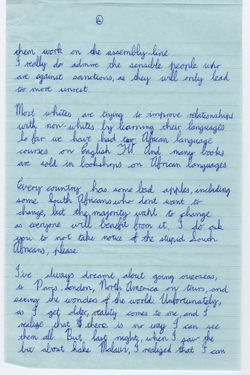 6
them work on the assembly line.
I really do admire the sensible people who
are against sanctions, as they will only lead
to more unrest.
Most whites are trying to improve relationships
with non-whites by learning their languages.
So far we have had African language
courses on English T.V. And many books
are sold in bookshops on African languages.
Every country has some bad apples, including
some South Africans who don't want to
change, but the majority want to change
as everyone will benefit from it. I do ask
you to not take notice of the stupid South
Africans, please.
I've always dreamt about going overseas,
to Paris, London, North America on tours, and
seeing the wonders of the world. Unfortunately,
as I get older, reality comes to me, and I
realize that there is no way I can see
them all. But last night, when I saw the
bit about Lake Malawi, I realized that I can